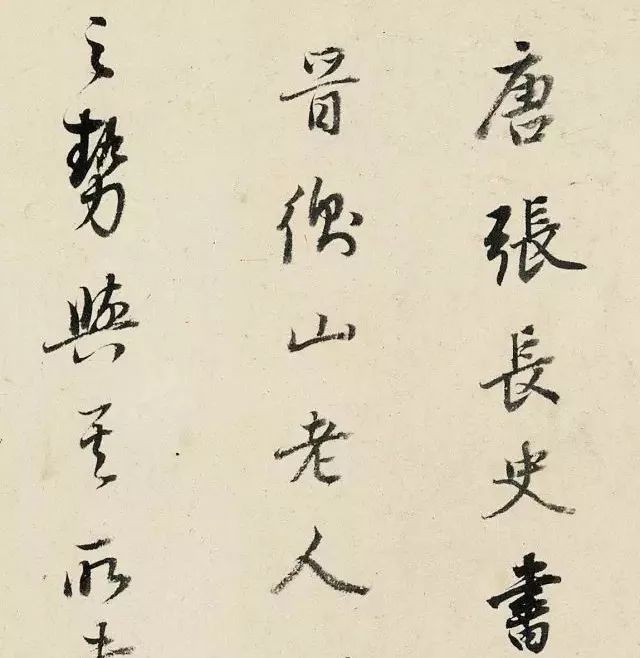 唐張長史書
衡山老人
之勢與其所